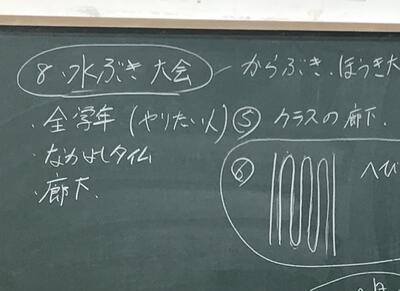 8. 水ぶき大会 - からぶき、ほうき大
・全学年 (やりたい人) ⑤ クラスの廊下.
・なかよしタイム ⑥ へび
・廊下.